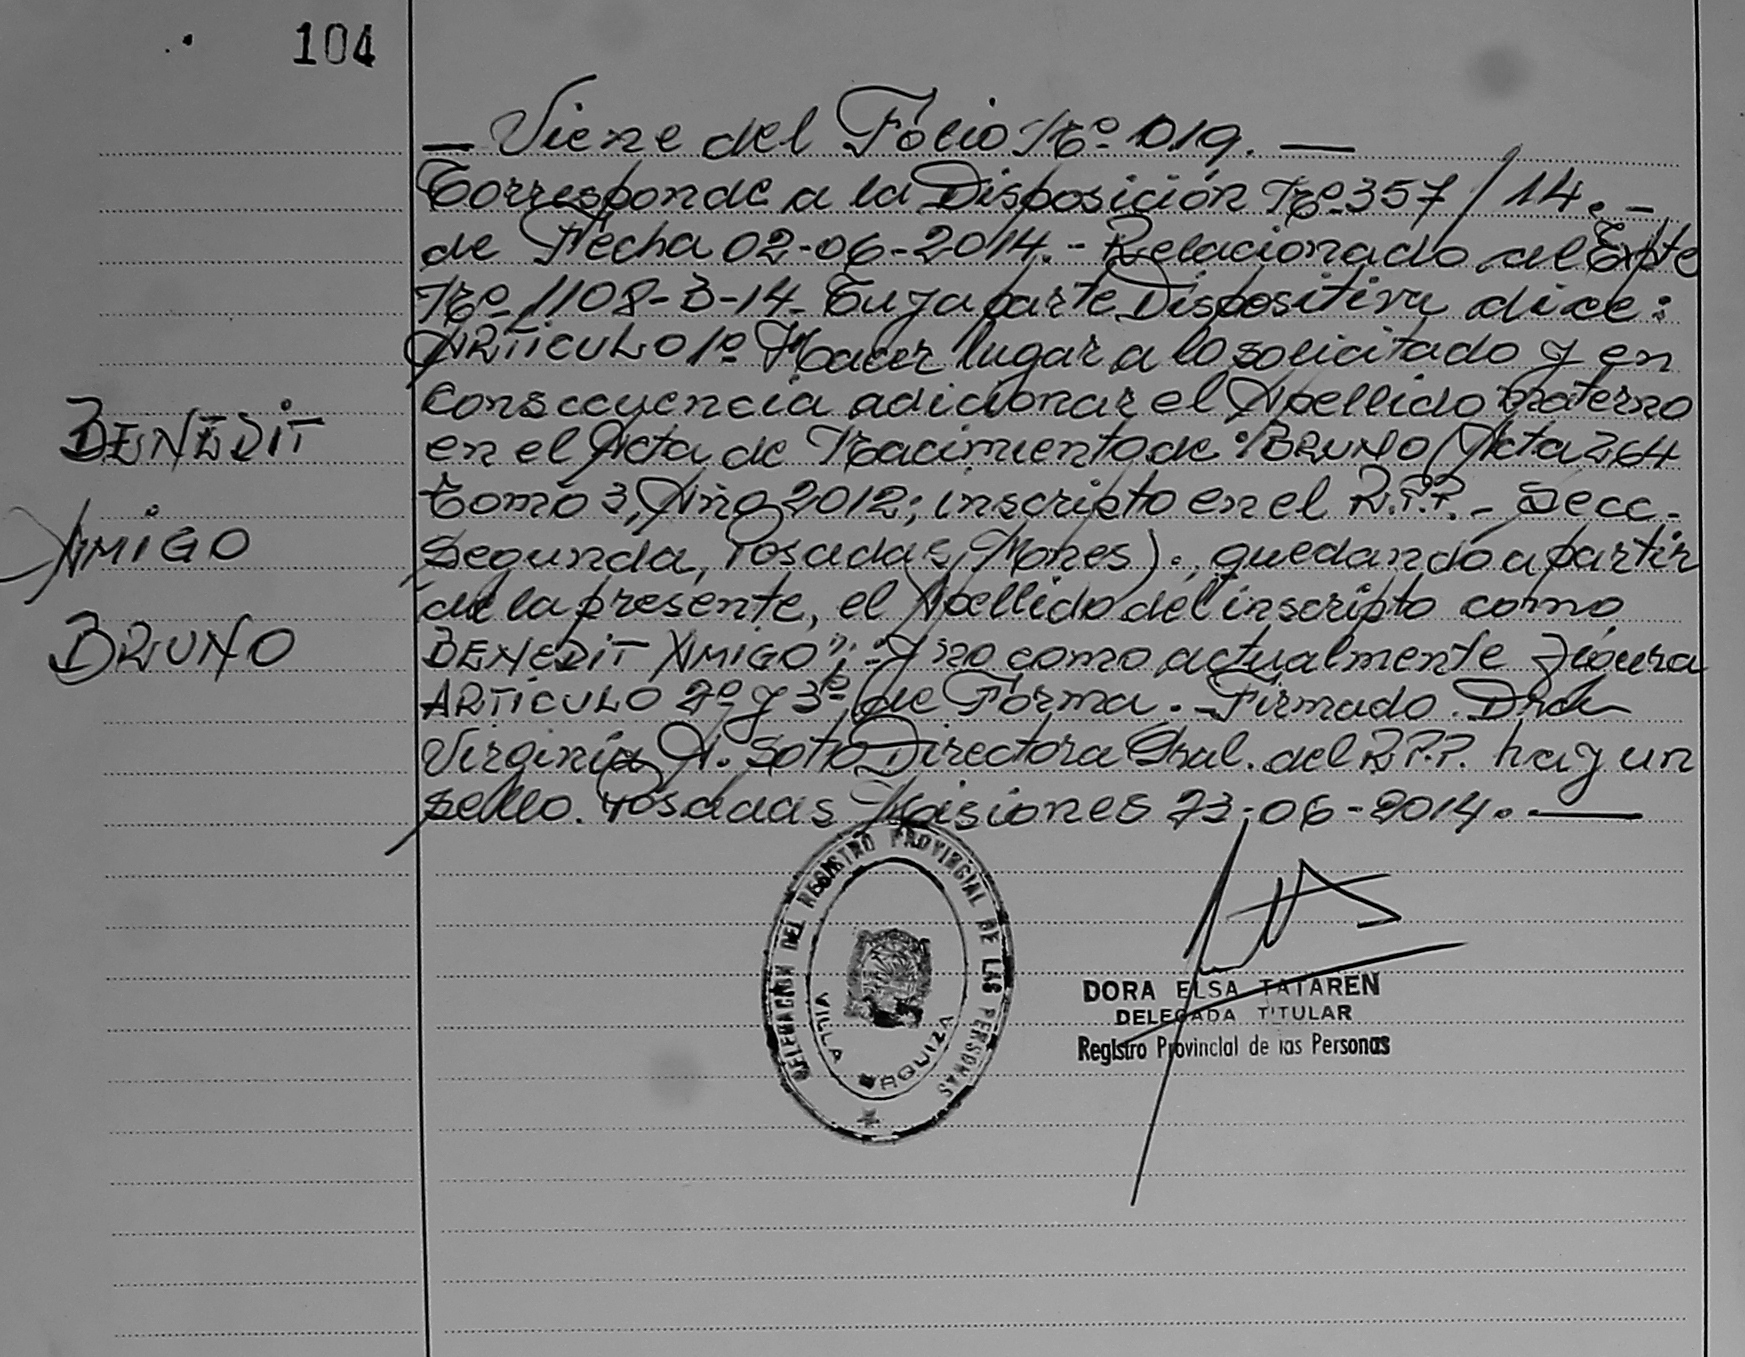 104
— Viene del Folio Nº 019. —
Corresponde a la Disposición Nº 357/14.-
de Fecha 02-06-2014.- Relacionado al Expte
Nº 1108-B-14. Cuya parte Dispositiva dice:
ARTiCULO 1º Hacer lugar a lo solicitado y en
Consecuencia adicionar el Apellido Materno
en el Acta de Nacimiento de: BRUNO (Acta 264
Tomo 3, Año 2012; inscripto en el R.P.P. - Secc.
Segunda, Posadas, Mnes)., quedando a partir
de la presente, el Apellido del inscripto como
BENEDiT AMiGO"; Y no como actualmente Figura
ARTíCULO 2º y 3º de Forma. - Firmado. Dra
Virginia A. Soto Directora Gral. del R.P.P. hay un
Sello. Posadas Misiones 23-06-2014. —
BENEDiT
AMiGO
BRUNO
DELEGACION DEL REGISTRO PROVINCIAL DE LAS PERSONAS
VILLA URQUIZA
DORA ELSA TATAREN
DELEGADA TITULAR
Registro Provincial de las Personas